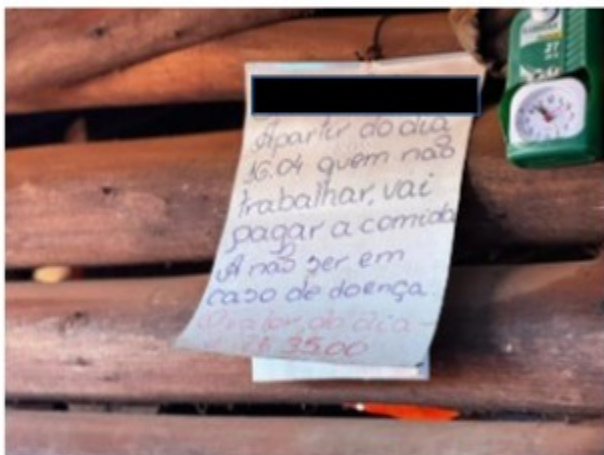 Apartir do dia
16.04 quem não
trabalhar, vai
pagar a comida
A não ser em
caso de doença
valor do dia -
R$ 35,00